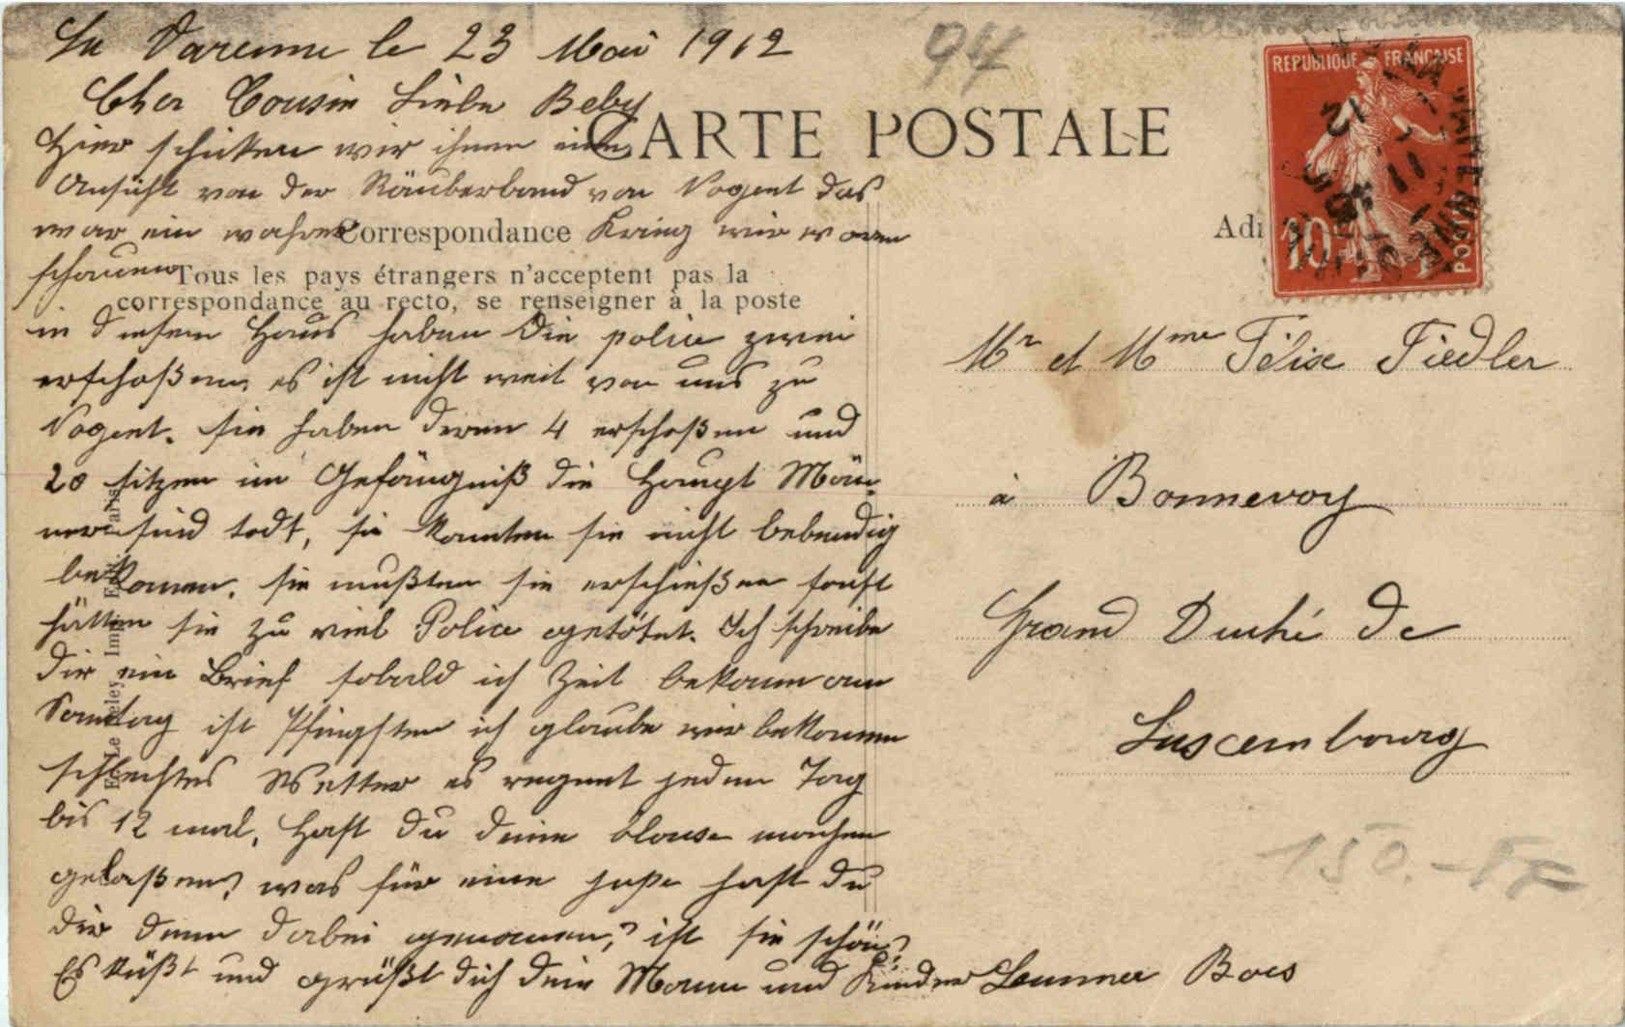 La Varenne le 23 Mai 1912
94
Cher Cousin Liebe Beby
Hier schicken wir ihnen eine
CARTE POSTALE
REPUBLIQUE FRANÇAISE
10
POSTES
Ansicht von der Räuberband von Nogent das
war ein wahrer Krieg wir waren
Correspondance
schauen
Tous les pays étrangers n'acceptent pas la
correspondance au recto, se renseigner à la poste
in diesem Haus haben die police zwei
erschoßen, es ist nicht weit von uns zu
Nogent. sie haben deren 4 erschoßen und
20 sitzen im Gefängniß die Haupt Män-
ner sind todt, sie konnten sie nicht lebendig
bekomen. sie mußten sie erschießen sonst
hätten sie zu viel Police getötet. Ich schreibe
dir ein Brief sobald ich Zeit bekomm am
Sonntag ist Pfingsten ich glaube wir bekomen
schlechtes Wetter es regnet jeden Tag
bis 12 mal, Hast du deine blouse machen
gelaßen? was für eine hast du
dir denn dabei genomen? ist sie schön?
Es küßt und grüßt dich dein Mann und Kinder
Adr
Mr et Mme Félix Fiedler
à Bonnevoy
Grand Duché de
Luxembourg
150.-
E. Le Deley, Imp. Edit. Paris